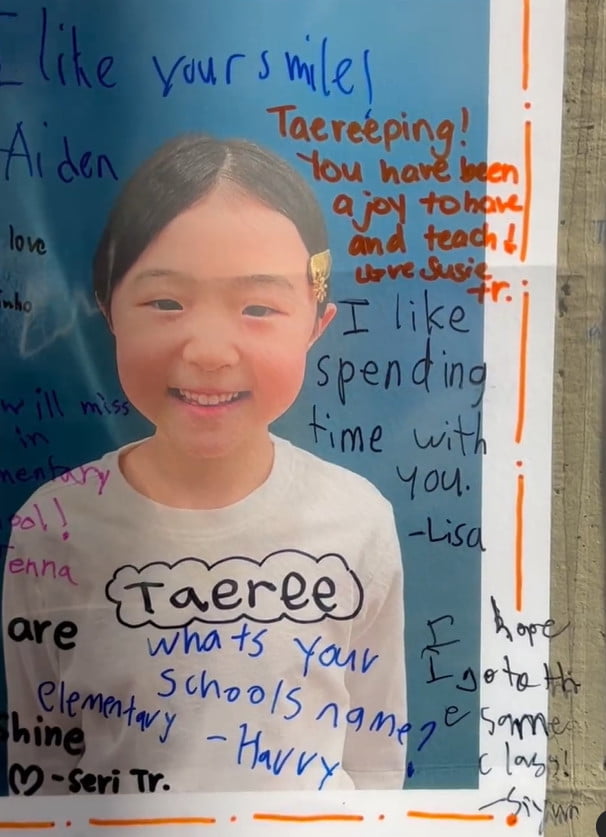 I like your smile!
Aiden
Taereeping!
You have been
a joy to have
and teach!
Love Susie
Tr.
love
I like
spending
time with
you.
-Lisa
will miss
in
mentary
ool!
enna
Taeree
are
shine
♡-Seri Tr.
whats your
elementary schools name?
-Harry
I hope
I go to th
e same
class!